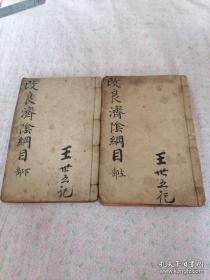 改良濟陰綱目
上部
王世之記
改良濟陰綱目
下部
王世之記